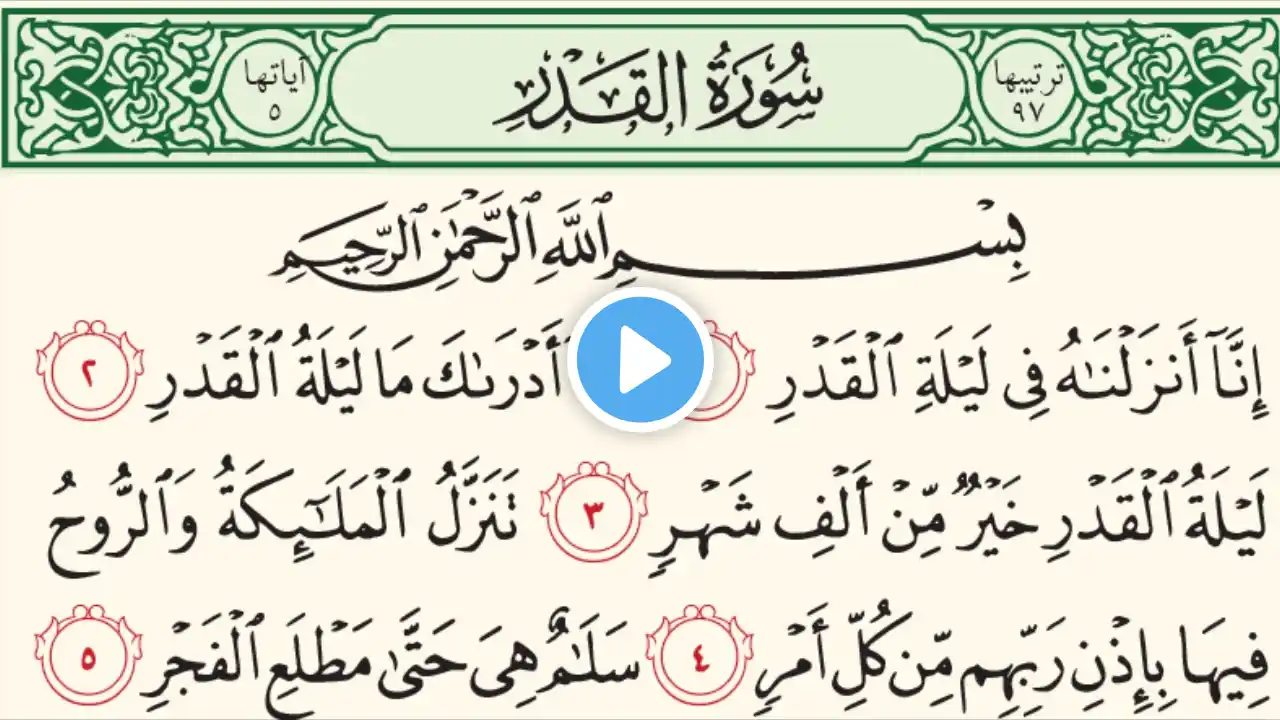 ترتيبها ٩٧ سُورَةُ القَدْرِ آياتها ٥
بِسْمِ ٱللَّهِ ٱلرَّحْمَٰنِ ٱلرَّحِيمِ
إِنَّآ أَنزَلْنَٰهُ فِى لَيْلَةِ ٱلْقَدْرِ أَدْرَىٰكَ مَا لَيْلَةُ ٱلْقَدْرِ ٢
لَيْلَةُ ٱلْقَدْرِ خَيْرٌ مِّنْ أَلْفِ شَهْرٍ ٣ تَنَزَّلُ ٱلْمَلَٰٓئِكَةُ وَٱلرُّوحُ
فِيهَا بِإِذْنِ رَبِّهِم مِّن كُلِّ أَمْرٍ ٤ سَلَٰمٌ هِىَ حَتَّىٰ مَطْلَعِ ٱلْفَجْرِ ٥